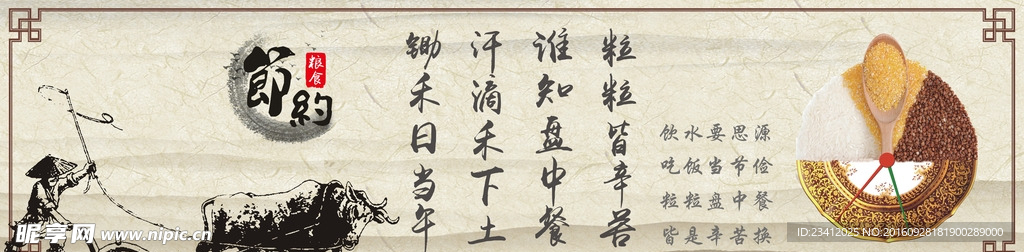 節約
粮食
锄禾日当年
汗滴禾下土
谁知盘中餐
粒粒皆辛苦
饮水要思源
吃饭当节俭
粒粒盘中餐
皆是辛苦换
昵享网 www.nipic.cn
ID:23412025 NO:20160928181900289000